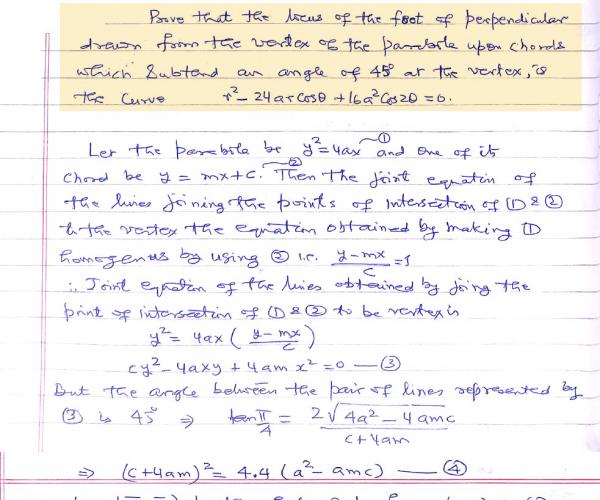 Prove that the locus of the foot of perpendicular
drawn from the vertex of the parabola upon chords
which subtend an angle of 45° at the vertex, is
the curve r² - 24ar cosθ + 16a² cos2θ = 0.
Let the parabola be y² = 4ax ① and one of its
chord be y = mx + c. ② Then the joint equation of
the lines joining the points of intersection of ① & ②
to the vertex the equation obtained by making ①
homogenus by using ② i.e. (y - mx)/c = 1
∴ Joint equation of the lines obtained by joing the
point of intersection of ① & ② to be vertex is
y² = 4ax ( (y - mx)/c )
cy² - 4axy + 4am x² = 0 — ③
But the angle between the pair of lines represented by
③ is 45° ⇒ tan π/4 = 2√(4a² - 4amc) / (c + 4am)
⇒ (c + 4am)² = 4.4 (a² - amc) — ④